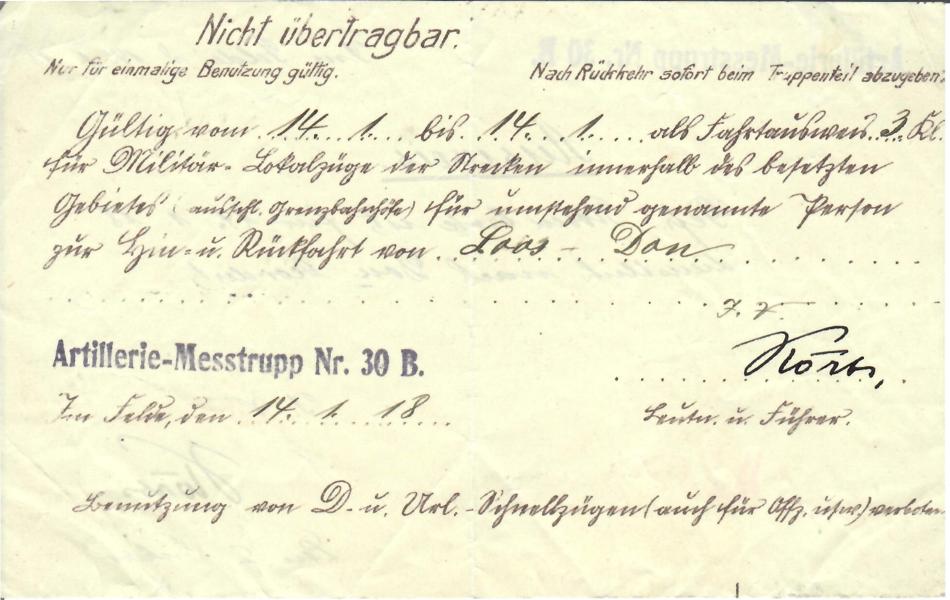 Nicht übertragbar.
Nur für einmalige Benutzung gültig. Nach Rückkehr sofort beim Truppenteil abzugeben.
Gültig vom 14. 1. bis 14. 1. als Fahrtausweis 3. Kl.
für Militär-Lokalzüge der Strecken innerhalb des besetzten
Gebietes (ausschl. Grenzbahnhöfe) für umstehend genannte Person
zur Hin- u. Rückfahrt von Loos - Don
I. V.
Artillerie-Messtrupp Nr. 30 B.
Im Felde, den 14. 1. 18
Leutn. u. Führer.
Benutzung von D- u. Url.-Schnellzügen (auch für Offz. usw.) verboten